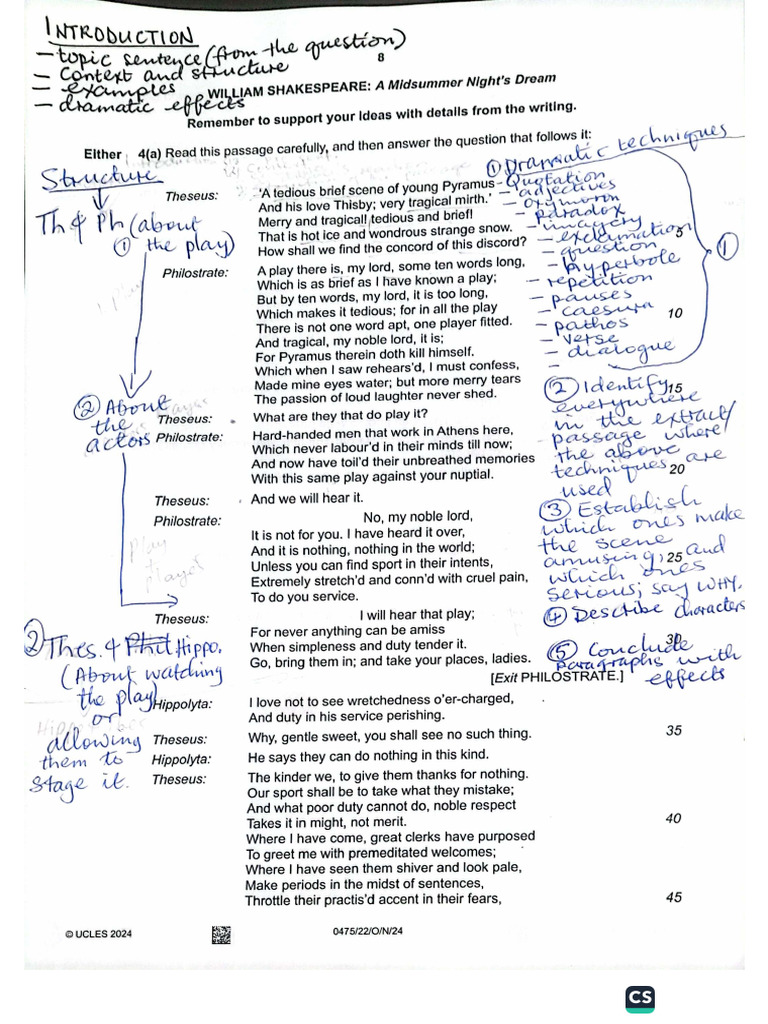 INTRODUCTION
– topic sentence (from the question)
– context and structure
– examples
– dramatic effects
8
WILLIAM SHAKESPEARE: A Midsummer Night's Dream
Remember to support your ideas with details from the writing.
Either 4(a) Read this passage carefully, and then answer the question that follows it:
Structure
Th & Ph (about
① the play)
② About
the
actors
② Thes. & Phil Hippo.
(About watching
the play)
or
allowing
them to
stage it.
Theseus: 'A tedious brief scene of young Pyramus
And his love Thisby; very tragical mirth.'
Merry and tragical! tedious and brief!
That is hot ice and wondrous strange snow.
How shall we find the concord of this discord? 5
Philostrate: A play there is, my lord, some ten words long,
Which is as brief as I have known a play;
But by ten words, my lord, it is too long,
Which makes it tedious; for in all the play
There is not one word apt, one player fitted. 10
And tragical, my noble lord, it is;
For Pyramus therein doth kill himself.
Which when I saw rehears'd, I must confess,
Made mine eyes water; but more merry tears
The passion of loud laughter never shed. 15
Theseus: What are they that do play it?
Philostrate: Hard-handed men that work in Athens here,
Which never labour'd in their minds till now;
And now have toil'd their unbreathed memories
With this same play against your nuptial. 20
Theseus: And we will hear it.
Philostrate: No, my noble lord,
It is not for you. I have heard it over,
And it is nothing, nothing in the world;
Unless you can find sport in their intents, 25
Extremely stretch'd and conn'd with cruel pain,
To do you service.
Theseus: I will hear that play;
For never anything can be amiss
When simpleness and duty tender it. 30
Go, bring them in; and take your places, ladies.
[Exit PHILOSTRATE.]
Hippolyta: I love not to see wretchedness o'er-charged,
And duty in his service perishing.
Theseus: Why, gentle sweet, you shall see no such thing. 35
Hippolyta: He says they can do nothing in this kind.
Theseus: The kinder we, to give them thanks for nothing.
Our sport shall be to take what they mistake;
And what poor duty cannot do, noble respect
Takes it in might, not merit. 40
Where I have come, great clerks have purposed
To greet me with premeditated welcomes;
Where I have seen them shiver and look pale,
Make periods in the midst of sentences,
Throttle their practis'd accent in their fears, 45
① Dramatic techniques
– Quotation
– adjectives
– oxymoron
– paradox
– imagery
– exclamation
– question
– hyperbole
– repetition
– pauses
– caesura
– pathos
– verse
– dialogue
–
①
② Identify
everywhere
in the extract/
passage where
the above
techniques are
used
③ Establish
which ones make
the scene
amusing, and
which ones
serious; say WHY.
④ Describe characters
⑤ Conclude
paragraphs with
effects
© UCLES 2024
0475/22/O/N/24
CS